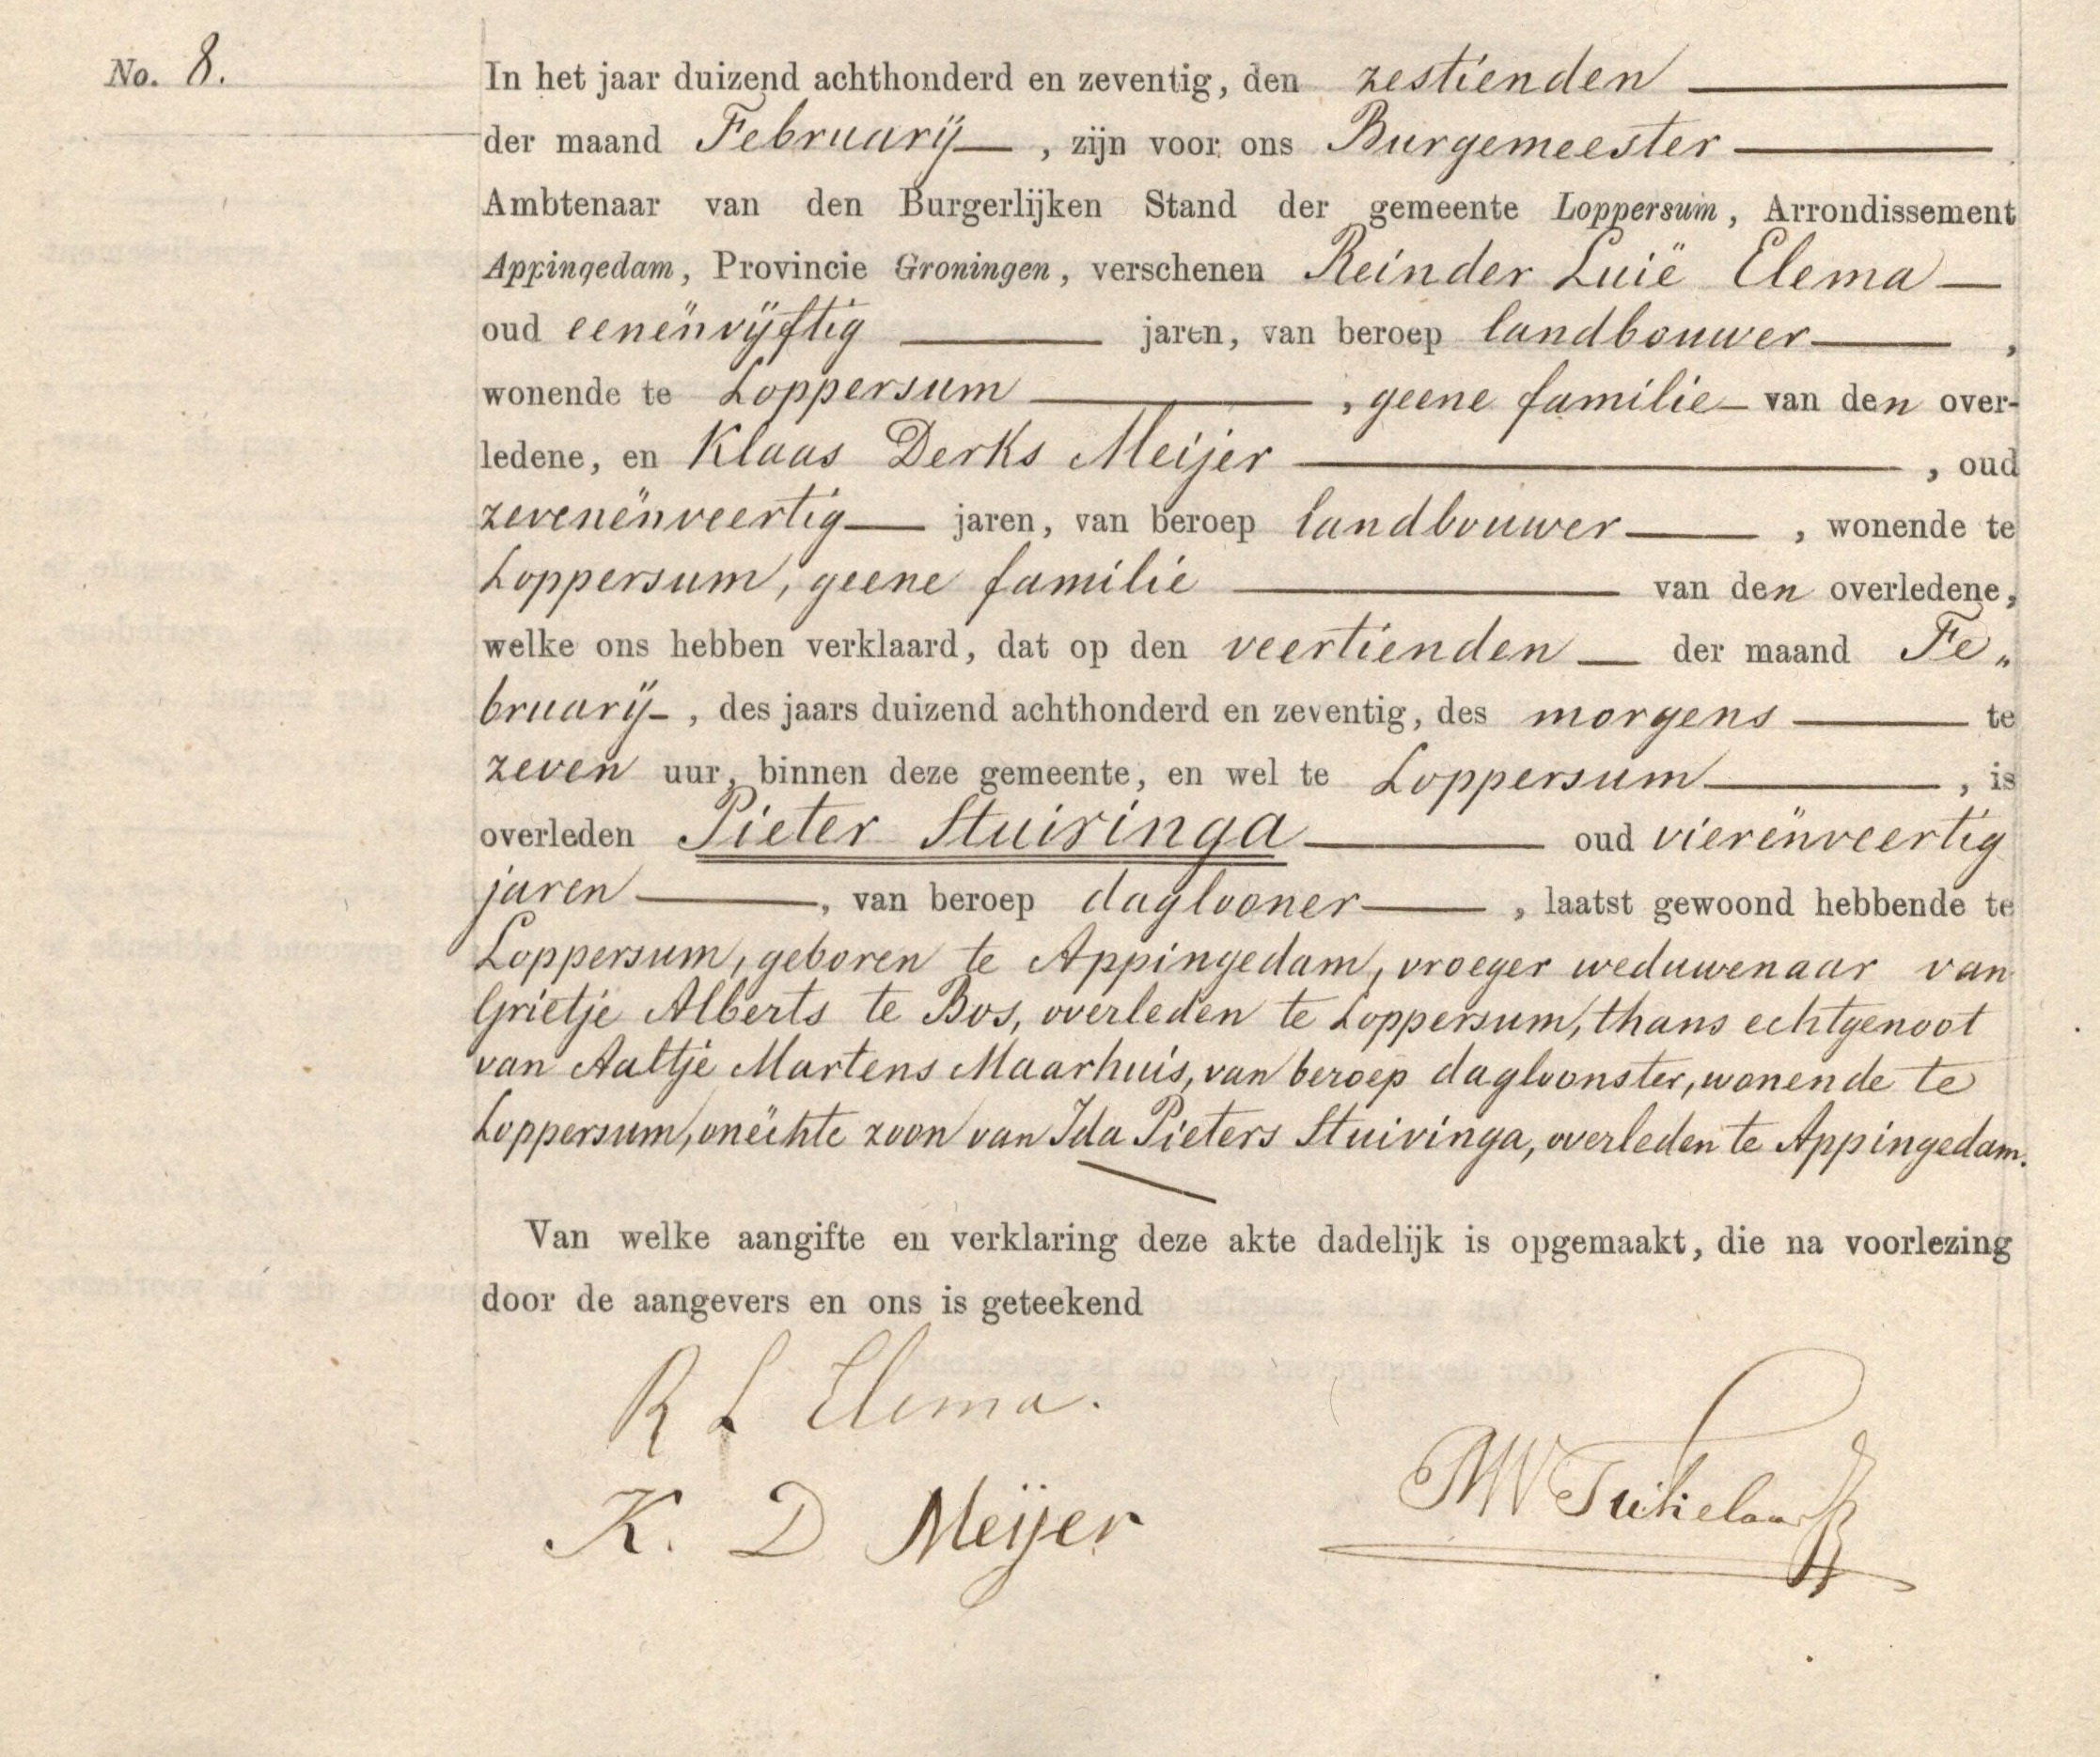 No. 8.
In het jaar duizend achthonderd en zeventig, den zestienden
der maand Februarij, zijn voor ons Burgemeester
Ambtenaar van den Burgerlijken Stand der gemeente Loppersum, Arrondissement
Appingedam, Provincie Groningen, verschenen Reinder Luië Elema
oud eenënvijftig jaren, van beroep landbouwer,
wonende te Loppersum, geene familie van den over-
ledene, en Klaas Derks Meijer, oud
zevenënveertig jaren, van beroep landbouwer, wonende te
Loppersum, geene familie van den overledene,
welke ons hebben verklaard, dat op den veertienden der maand Fe„
bruarij, des jaars duizend achthonderd en zeventig, des morgens te
zeven uur, binnen deze gemeente, en wel te Loppersum, is
overleden Pieter Stuivinga oud vierënveertig
jaren, van beroep daglooner, laatst gewoond hebbende te
Loppersum, geboren te Appingedam, vroeger weduwenaar van
Grietje Alberts te Bos, overleden te Loppersum, thans echtgenoot
van Aaltje Martens Maarhuis, van beroep dagloonster, wonende te
Loppersum, onëchte zoon van Ida Pieters Stuivinga, overleden te Appingedam.
Van welke aangifte en verklaring deze akte dadelijk is opgemaakt, die na voorlezing
door de aangevers en ons is geteekend
R L Elema.
K. D Meijer